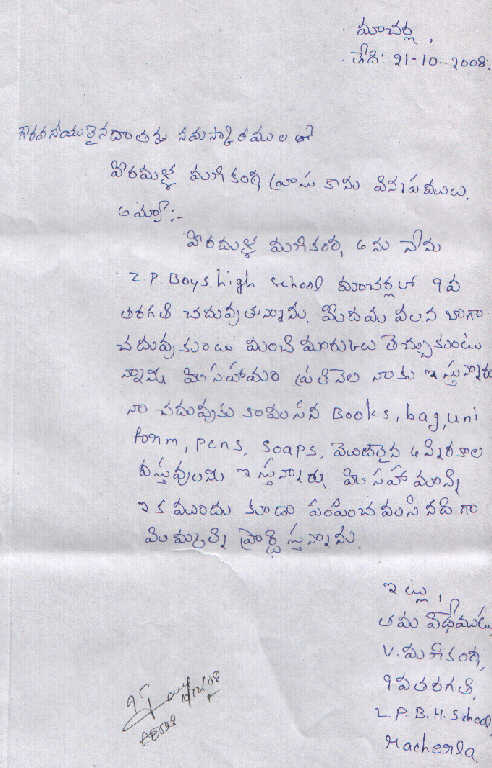 మాచర్ల,
తేది: 21-10-2008.
గౌరవనీయులైన దాతకు నమస్కారములతో
వ్రాయు కామ విన్నపములు.
అమ్మా:-
నేను
Z.P. Boys high school మాచర్లలో 9వ
తరగతి చదువుతున్నాను. మీ దయ వలన బాగా
చదువుకుంటు మంచి మార్కులు తెచ్చుకుంటు
న్నాను మీ సహాయం ప్రతి నెల నాకు ఇస్తున్నారు
నా చదువుకు కావలసిన Books, bag, uni
form, pens, soaps, మొదలైన అన్ని రకాల
వస్తువులను ఇస్తున్నారు మీ సహాయాన్ని
ఇక ముందు కూడా పంపించవలసినదిగా
మిమ్మల్ని ప్రార్థిస్తున్నాను.
ఇట్లు,
తమ విధేయుడు
9వ తరగతి,
Z.P.B.H. School,
Macherla